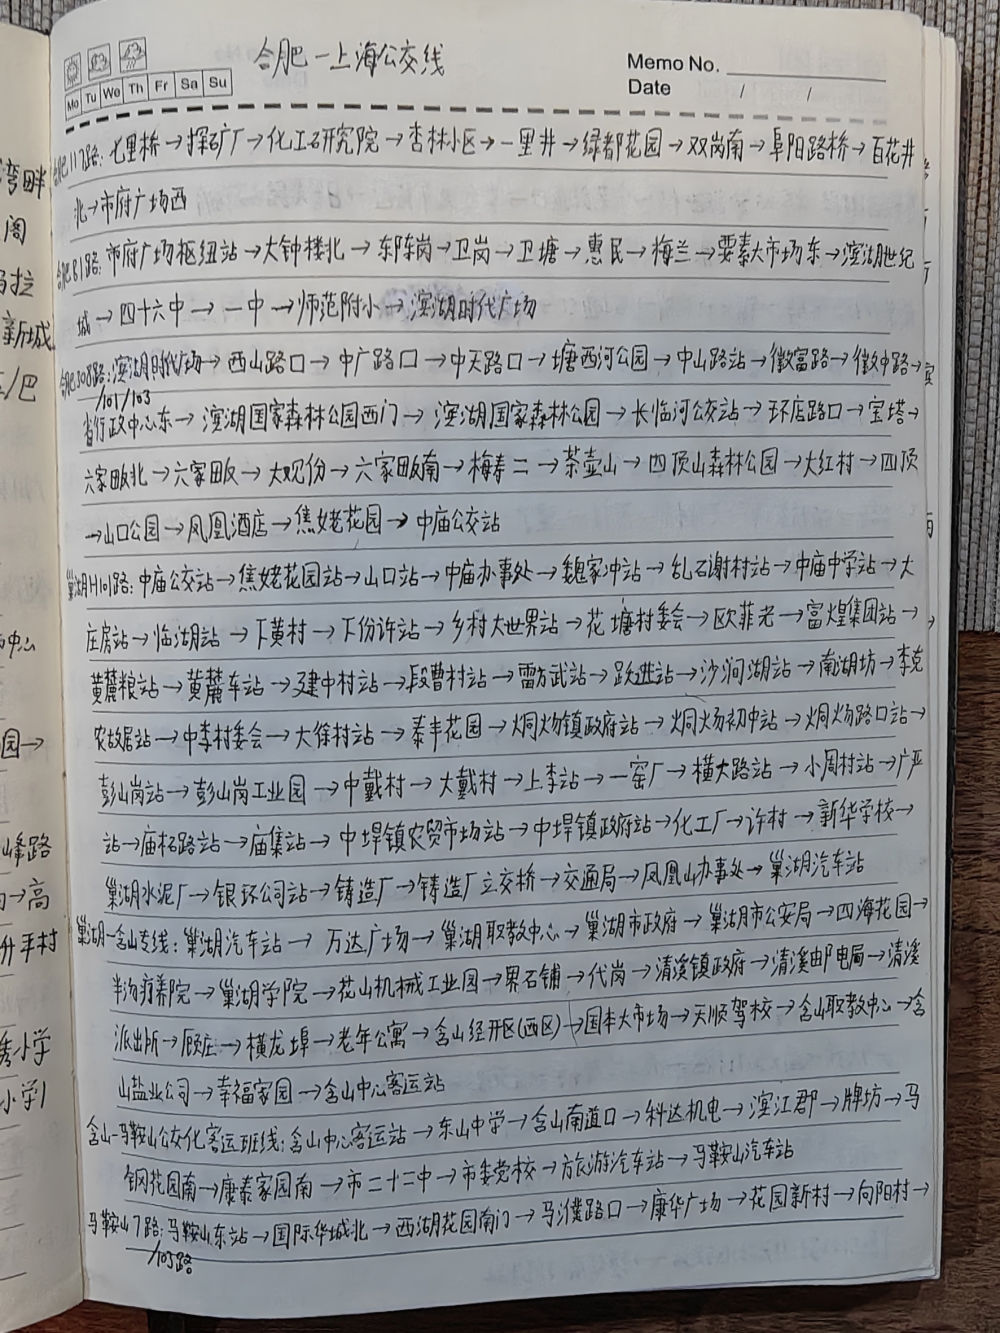 合肥-上海公交线
Memo No.
Date / /
Mo Tu We Th Fr Sa Su
合肥117路: 七里桥→探矿厂→化工研究院→杏林小区→一里井→绿都花园→双岗南→阜阳路桥→百花井
北→市府广场西
合肥B1路: 市府广场枢纽站→大钟楼北→东陈岗→卫岗→卫塘→惠民→梅兰→要素大市场东→滨湖世纪
城→四十六中→一中→师范附小→滨湖时代广场
合肥508路: 滨湖时代广场→西山路口→中广路口→中天路口→塘西河公园→中山路站→徽富路→徽中路→
/101/103
省行政中心东→滨湖国家森林公园西门→滨湖国家森林公园→长临河公交站→环店路口→宝塔→
六家畈北→六家畈→大观份→六家畈南→梅寿二→茶壶山→四顶山森林公园→大红村→四顶
→山口公园→凤凰酒店→焦姥花园→中庙公交站
巢湖H101路: 中庙公交站→焦姥花园站→山口站→中庙办事处→魏家冲站→乱石谢村站→中庙中学站→大
庄房站→临湖站→下黄村→下份许站→乡村大世界站→花塘村委会→欧菲光→富煌集团站→
黄麓粮站→黄麓车站→建中村站→段曹村站→雷方武站→跃进站→沙涧湖站→南湖坊→李克
农故居站→中李村委会→大俆村站→泰丰花园→烔炀镇政府站→烔炀初中站→烔炀路口站→
彭山岗站→彭山岗工业园→中戴村→大戴村→上李站→一窑厂→横大路站→小周村站→广严
站→庙柘路站→庙集站→中垾镇农贸市场站→中垾镇政府站→化工厂→许村→新华学校→
巢湖水泥厂→银环公司站→铸造厂→铸造厂立交桥→交通局→凤凰山办事处→巢湖汽车站
巢湖-含山专线: 巢湖汽车站→万达广场→巢湖职教中心→巢湖市政府→巢湖市公安局→四海花园→
半汤疗养院→巢湖学院→花山机械工业园→界石铺→代岗→清溪镇政府→清溪邮电局→清溪
派出所→顾庄→横龙埠→老年公寓→含山经开区(西区)→国本大市场→天顺驾校→含山职教中心→含
山盐业公司→幸福家园→含山中心客运站
含山-马鞍山公交化客运班线: 含山中心客运站→东山中学→含山南道口→科达机电→滨江郡→牌坊→马
钢花园南→康泰家园南→市二十二中→市委党校→方旅游汽车站→马鞍山汽车站
马鞍山7路: 马鞍山东站→国际华城北→西湖花园南门→马濮路口→康华广场→花园新村→向阳村→
/105路